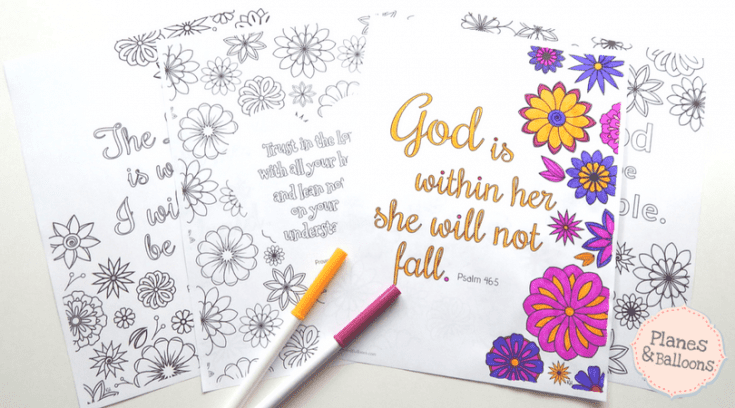 The
is
I wil
be
Trust in the Lo
with all your he
and lean not
on your
underst
God is
within her
she will not
fall. Psalm 46:5
od
ble.
Planes
& Balloons